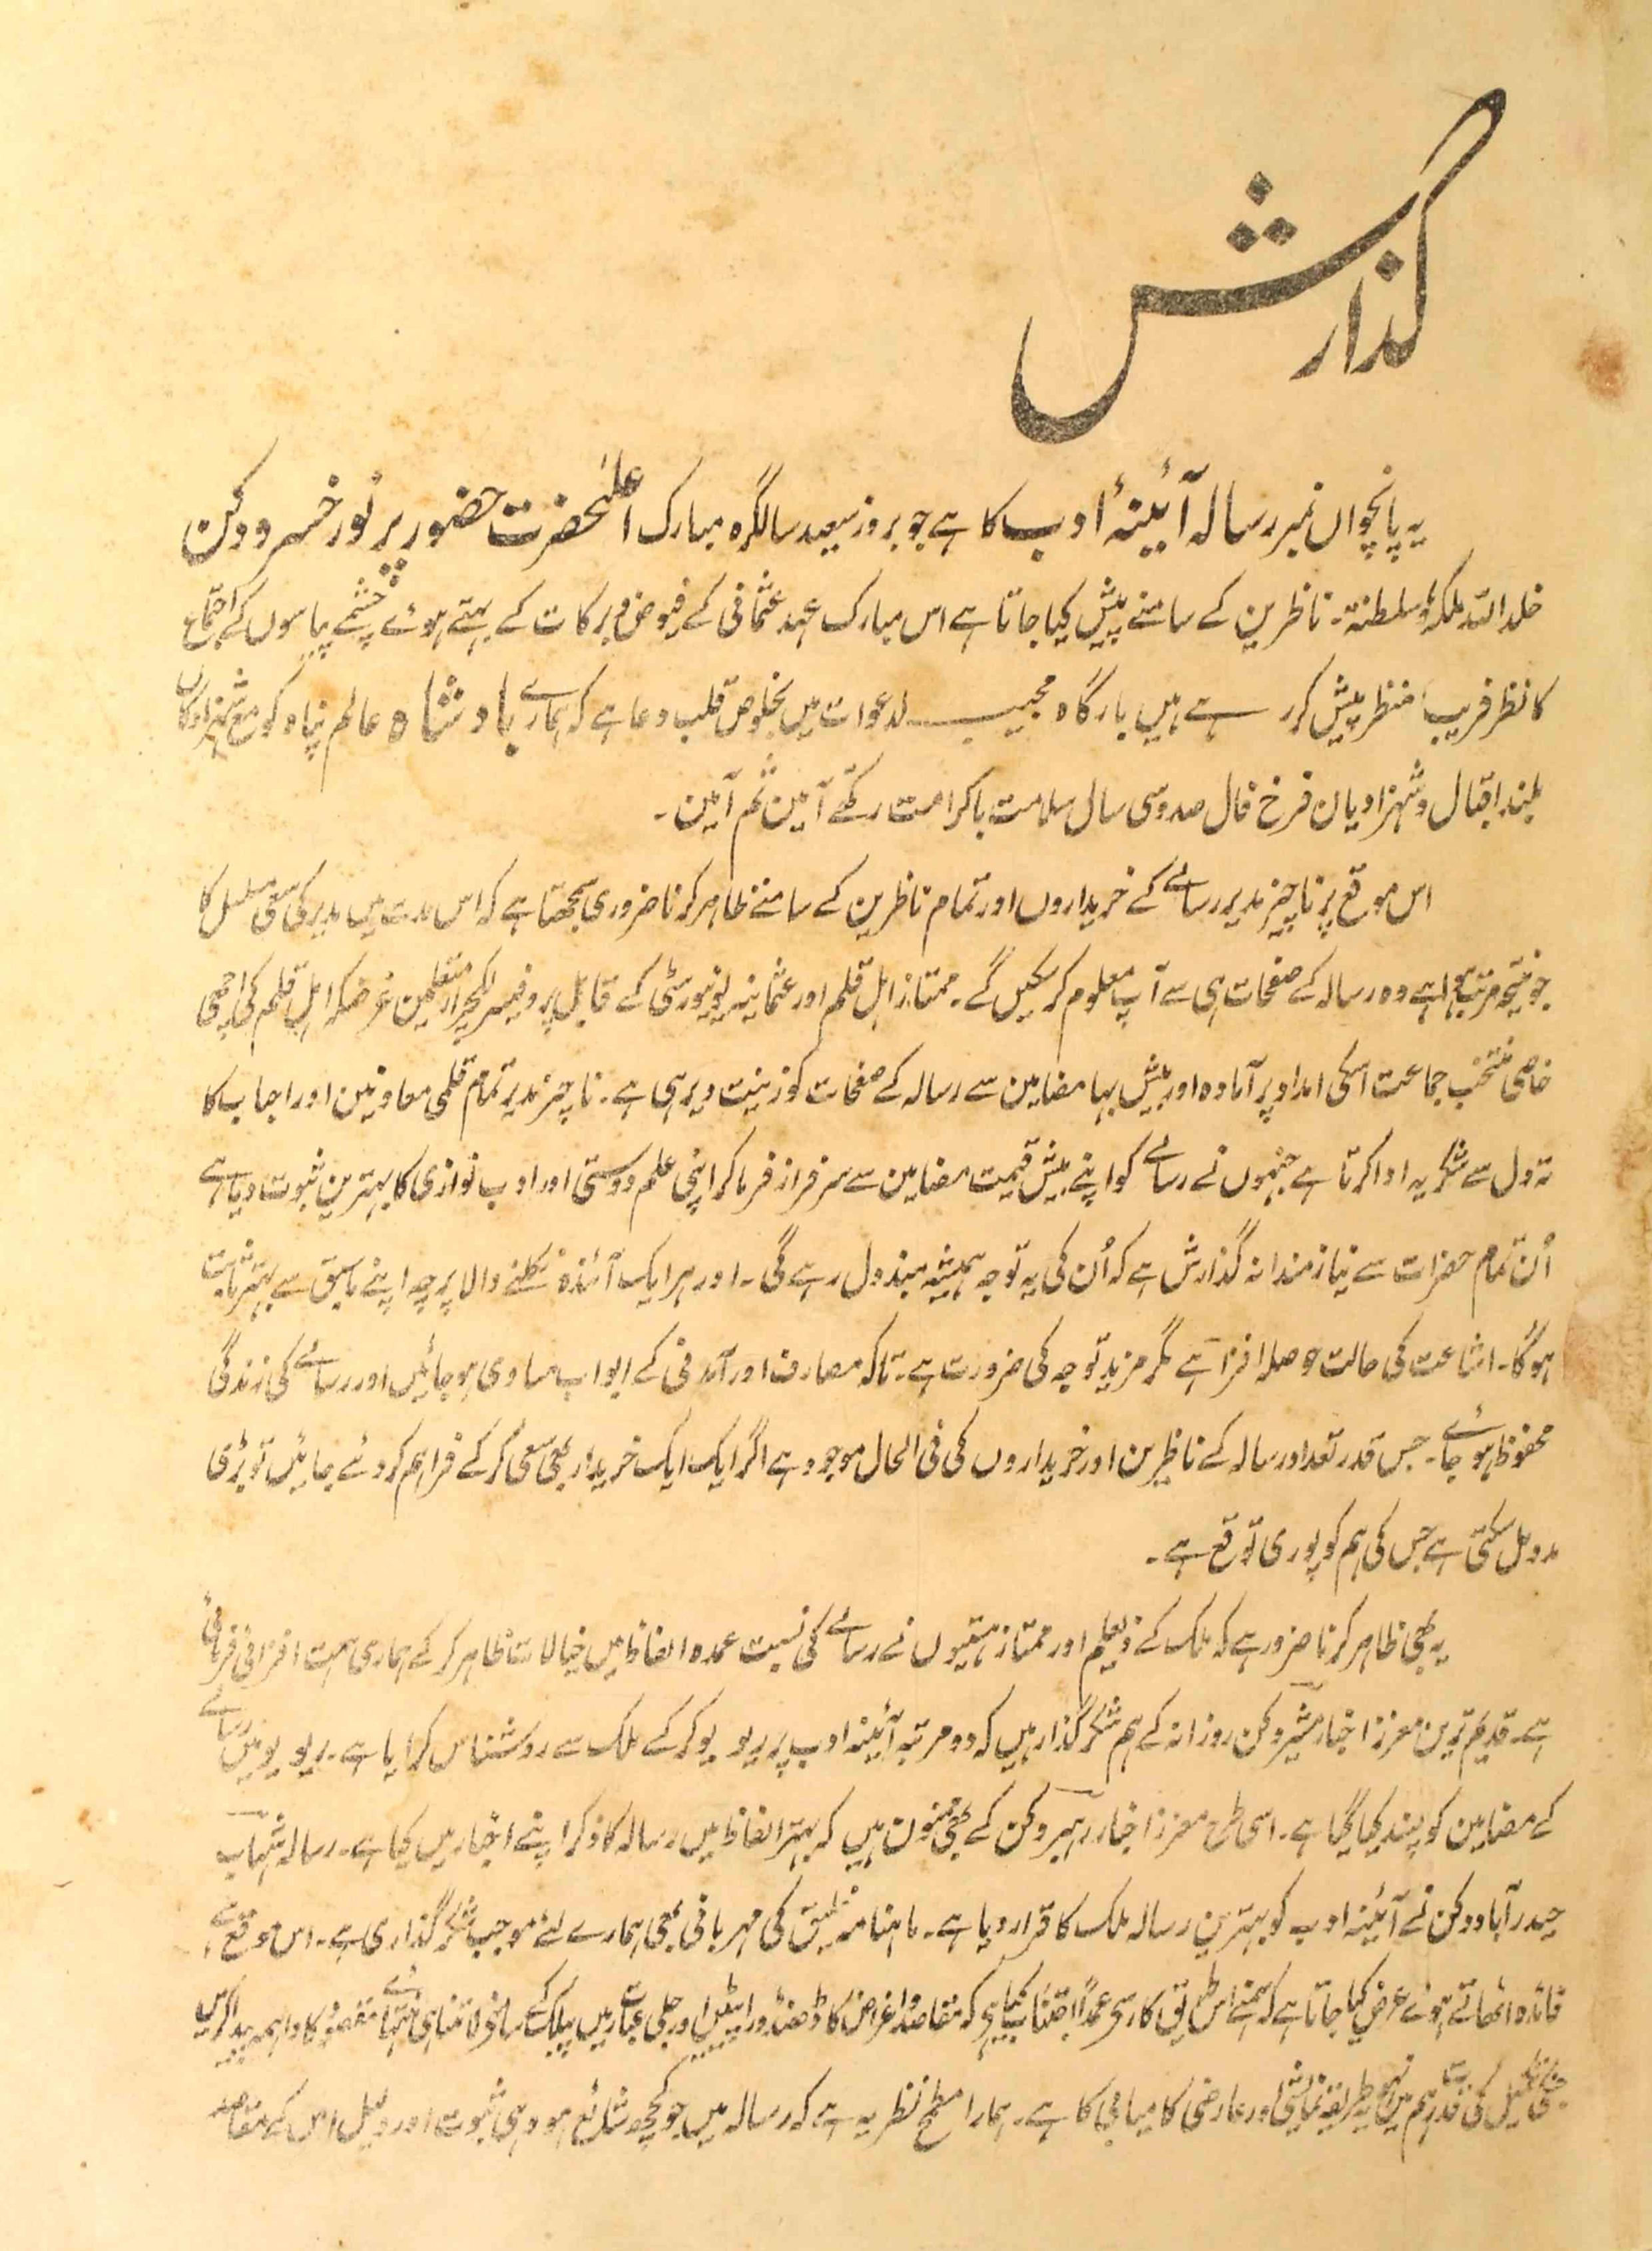 گذارش
یہ پانچواں نمبر رسالہ آئینۂ ادب کا ہے جو بروز سعید سالگرہ مبارک اعلٰحضرت حضور پر نور خسرو دکن
خلد اللہ ملکہٗ وسلطنتہٗ۔ ناظرین کے سامنے پیش کیا جاتا ہے اس مبارک عہد عثمانی کے فیوض و برکات کے بہتے ہوئے چشمے پیاسوں کے اجتماع
کا نظر فریب منظر پیش کر رہے ہیں بارگاہ مجیب الدعوات میں بخلوص قلب دعا ہے کہ ہمارے بادشاہ عالم پناہ کو مع شہزادگان
بلند اقبال و شہزادیان فرخ فال صد و سی سال سلامت باکرامت رکھے آمین ثم آمین۔
اس موقع پر ناچیز مدیر رسالے کے خریداروں اور تمام ناظرین کے سامنے ظاہر کرنا ضروری سمجھتا ہے کہ اس مدت میں مدیر کی سعی مسلسل کا
جو نتیجہ مرتب ہوا ہے وہ رسالہ کے صفحات ہی سے آپ معلوم کرسکیں گے۔ ممتاز اہل قلم اور عثمانیہ یونیورسٹی کے قابل پروفیسر لکچرار متعلمین غرضکہ اہل قلم کی اچھی
خاصی منتخب جماعت اسکی امداد پر آمادہ اور بیش بہا مضامین سے رسالہ کے صفحات کو زینت دیرہی ہے۔ ناچیز مدیر تمام قلمی معاونین اور احباب کا
تہ دل سے شکریہ ادا کرتا ہے جنہوں نے رسالے کو اپنے بیش قیمت مضامین سے سرفراز فرما کر اپنی علم دوستی اور ادب نوازی کا بہترین ثبوت دیا ہے
اُن تمام حضرات سے نیازمندانہ گذارش ہے کہ اُن کی یہ توجہ ہمیشہ مبذول رہے گی۔ اور ہر ایک آئندہ نکلنے والا پرچہ اپنے ماسبق سے بہتر ثابت
ہوگا۔ اشاعت کی حالت حوصلہ افزا ہے مگر مزید توجہ کی ضرورت ہے۔ تاکہ مصارف اور آمدنی کے ابواب مساوی ہوجائیں اور رسالے کی زندگی
محفوظ ہو جائے۔ جس قدر تعداد رسالہ کے ناظرین اور خریداروں کی فی الحال موجود ہے اگر ایک ایک خریدار بھی سعی کر کے فراہم کردئے جائیں تو بڑی
مدد مل سکتی ہے جس کی ہم کو پوری توقع ہے۔
یہ بھی ظاہر کرنا ضرور ہے کہ ملک کے ذیعلم اور ممتاز ہستیوں نے رسالے کی نسبت عمدہ الفاظ میں خیالات ظاہر کر کے ہماری ہمت افزائی فرمائی
ہے۔ قدیم ترین معزز اخبار مشیر دکن روزانہ کے ہم شکر گذار ہیں کہ دو مرتبہ آئینہ ادب پر ریویو کر کے ملک سے روشناس کرایا ہے۔ ریویو میں رسالے
کے مضامین کو پسند کیا گیا ہے۔ اسی طرح معزز اخبار رہبر دکن کے بھی ممنون ہیں کہ بہتر الفاظ میں رسالہ کا ذکر اپنے اخبار میں کیا ہے۔ رسالہ شہاب
حیدرآباد دکن نے آئینہ ادب کو بہترین رسالہ ملک کا قرار دیا ہے۔ ماہنامہ خلیق کی مہربانی بھی ہمارے لئے موجب شکر گذاری ہے۔ اس موقع سے
فائدہ اٹھاتے ہوئے عرض کیا جاتا ہے کہ ہمنے اس طریق کار سے عمداً اجتناب کیا ہے کہ مقاصد و اغراض کا ڈھنڈورا پیٹیں اور جلی عبارت میں پبلک کے سامنے لامتناہی منتہائے مقصود کا واہمہ پیدا کریں
جنکی تکمیل کی قدرت ہم میں نہو یہ طریقہ نمایشی اور عارضی کامیابی کا ہے۔ ہمارا مطمح نظر یہ ہے کہ رسالہ میں جو کچھ شائع ہو وہی ثبوت اور دلیل اس کے مقاصد